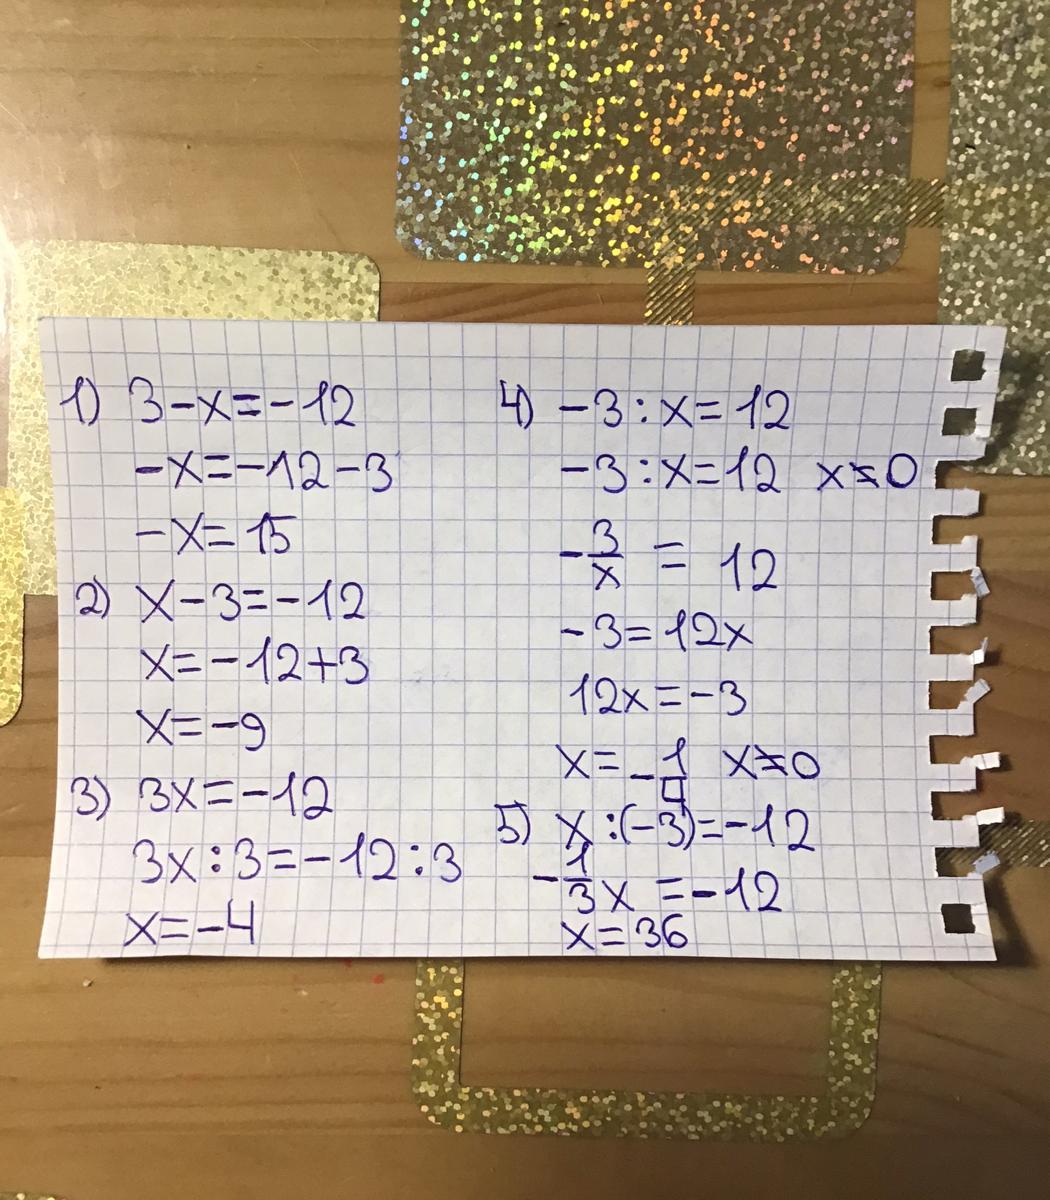 1) 3-x=-12
-x=-12-3
-x=15
2) x-3=-12
x=-12+3
x=-9
3) 3x=-12
3x:3=-12:3
x=-4
4) -3:x=12
-3:x=12 x≠0
-3/x = 12
-3=12x
12x=-3
x=-1/4 x≠0
5) x:(-3)=-12
-1/3x=-12
x=36